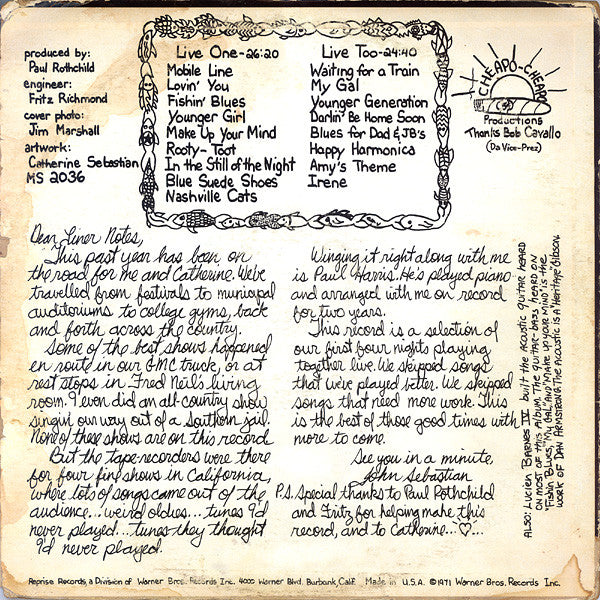 produced by:
Paul Rothchild
engineer:
Fritz Richmond
cover photo:
Jim Marshall
artwork:
Catherine Sebastian
MS 2036
Live One-26:20
Mobile Line
Lovin' You
Fishin' Blues
Younger Girl
Make Up Your Mind
Rooty-Toot
In the Still of the Night
Blue Suede Shoes
Nashville Cats
Live Too-24:40
Waiting for a Train
My Gal
Younger Generation
Darlin' Be Home Soon
Blues for Dad & JB's
Happy Harmonica
Amy's Theme
Irene
CHEAPO-CHEAPO
Productions
Thanks Bob Cavallo
(Da Vice-Prez)
Dear Liner Notes,
This past year has been on
the road for me and Catherine. We've
travelled from festivals to municipal
auditoriums to college gyms, back
and forth across the country.
Some of the best shows happened
en route in our GMC truck, or at
rest stops in Fred Neil's living
room. I even did an all-country show
singin' our way out of a southern jail.
None of these shows are on this record
But the tape-recorders were there
for four fine shows in California,
where lots of songs came out of the
audience...weird oldies...tunes I'd
never played...tunes they thought
I'd never played.
Winging it right along with me
is Paul Harris. He's played piano
and arranged with me on record
for two years.
This record is a selection of
our first four nights playing
together live. We skipped songs
that we've played better. We skipped
songs that need more work. This
is the best of those good times with
more to come.
See you in a minute,
John Sebastian
P.S. Special thanks to Paul Rothchild
and Fritz for helping make this
record, and to Catherine...♡...
ALSO: LUCIEN BARNES IV built the ACOUSTIC GUITAR HEARD
ON MOST OF THIS ALBUM. THE GUITAR-BASS HEARD ON
"FISHIN' BLUES," "MY GAL," AND "MAKE UP YOUR MIND" IS THE
WORK OF DAN ARMSTRONG. THE ACOUSTIC IS A 'HERITAGE' GIBSON.
Reprise Records, a Division of Warner Bros. Records Inc. 4000 Warner Blvd. Burbank, Calif. Made in U.S.A. ©1971 Warner Bros. Records Inc.